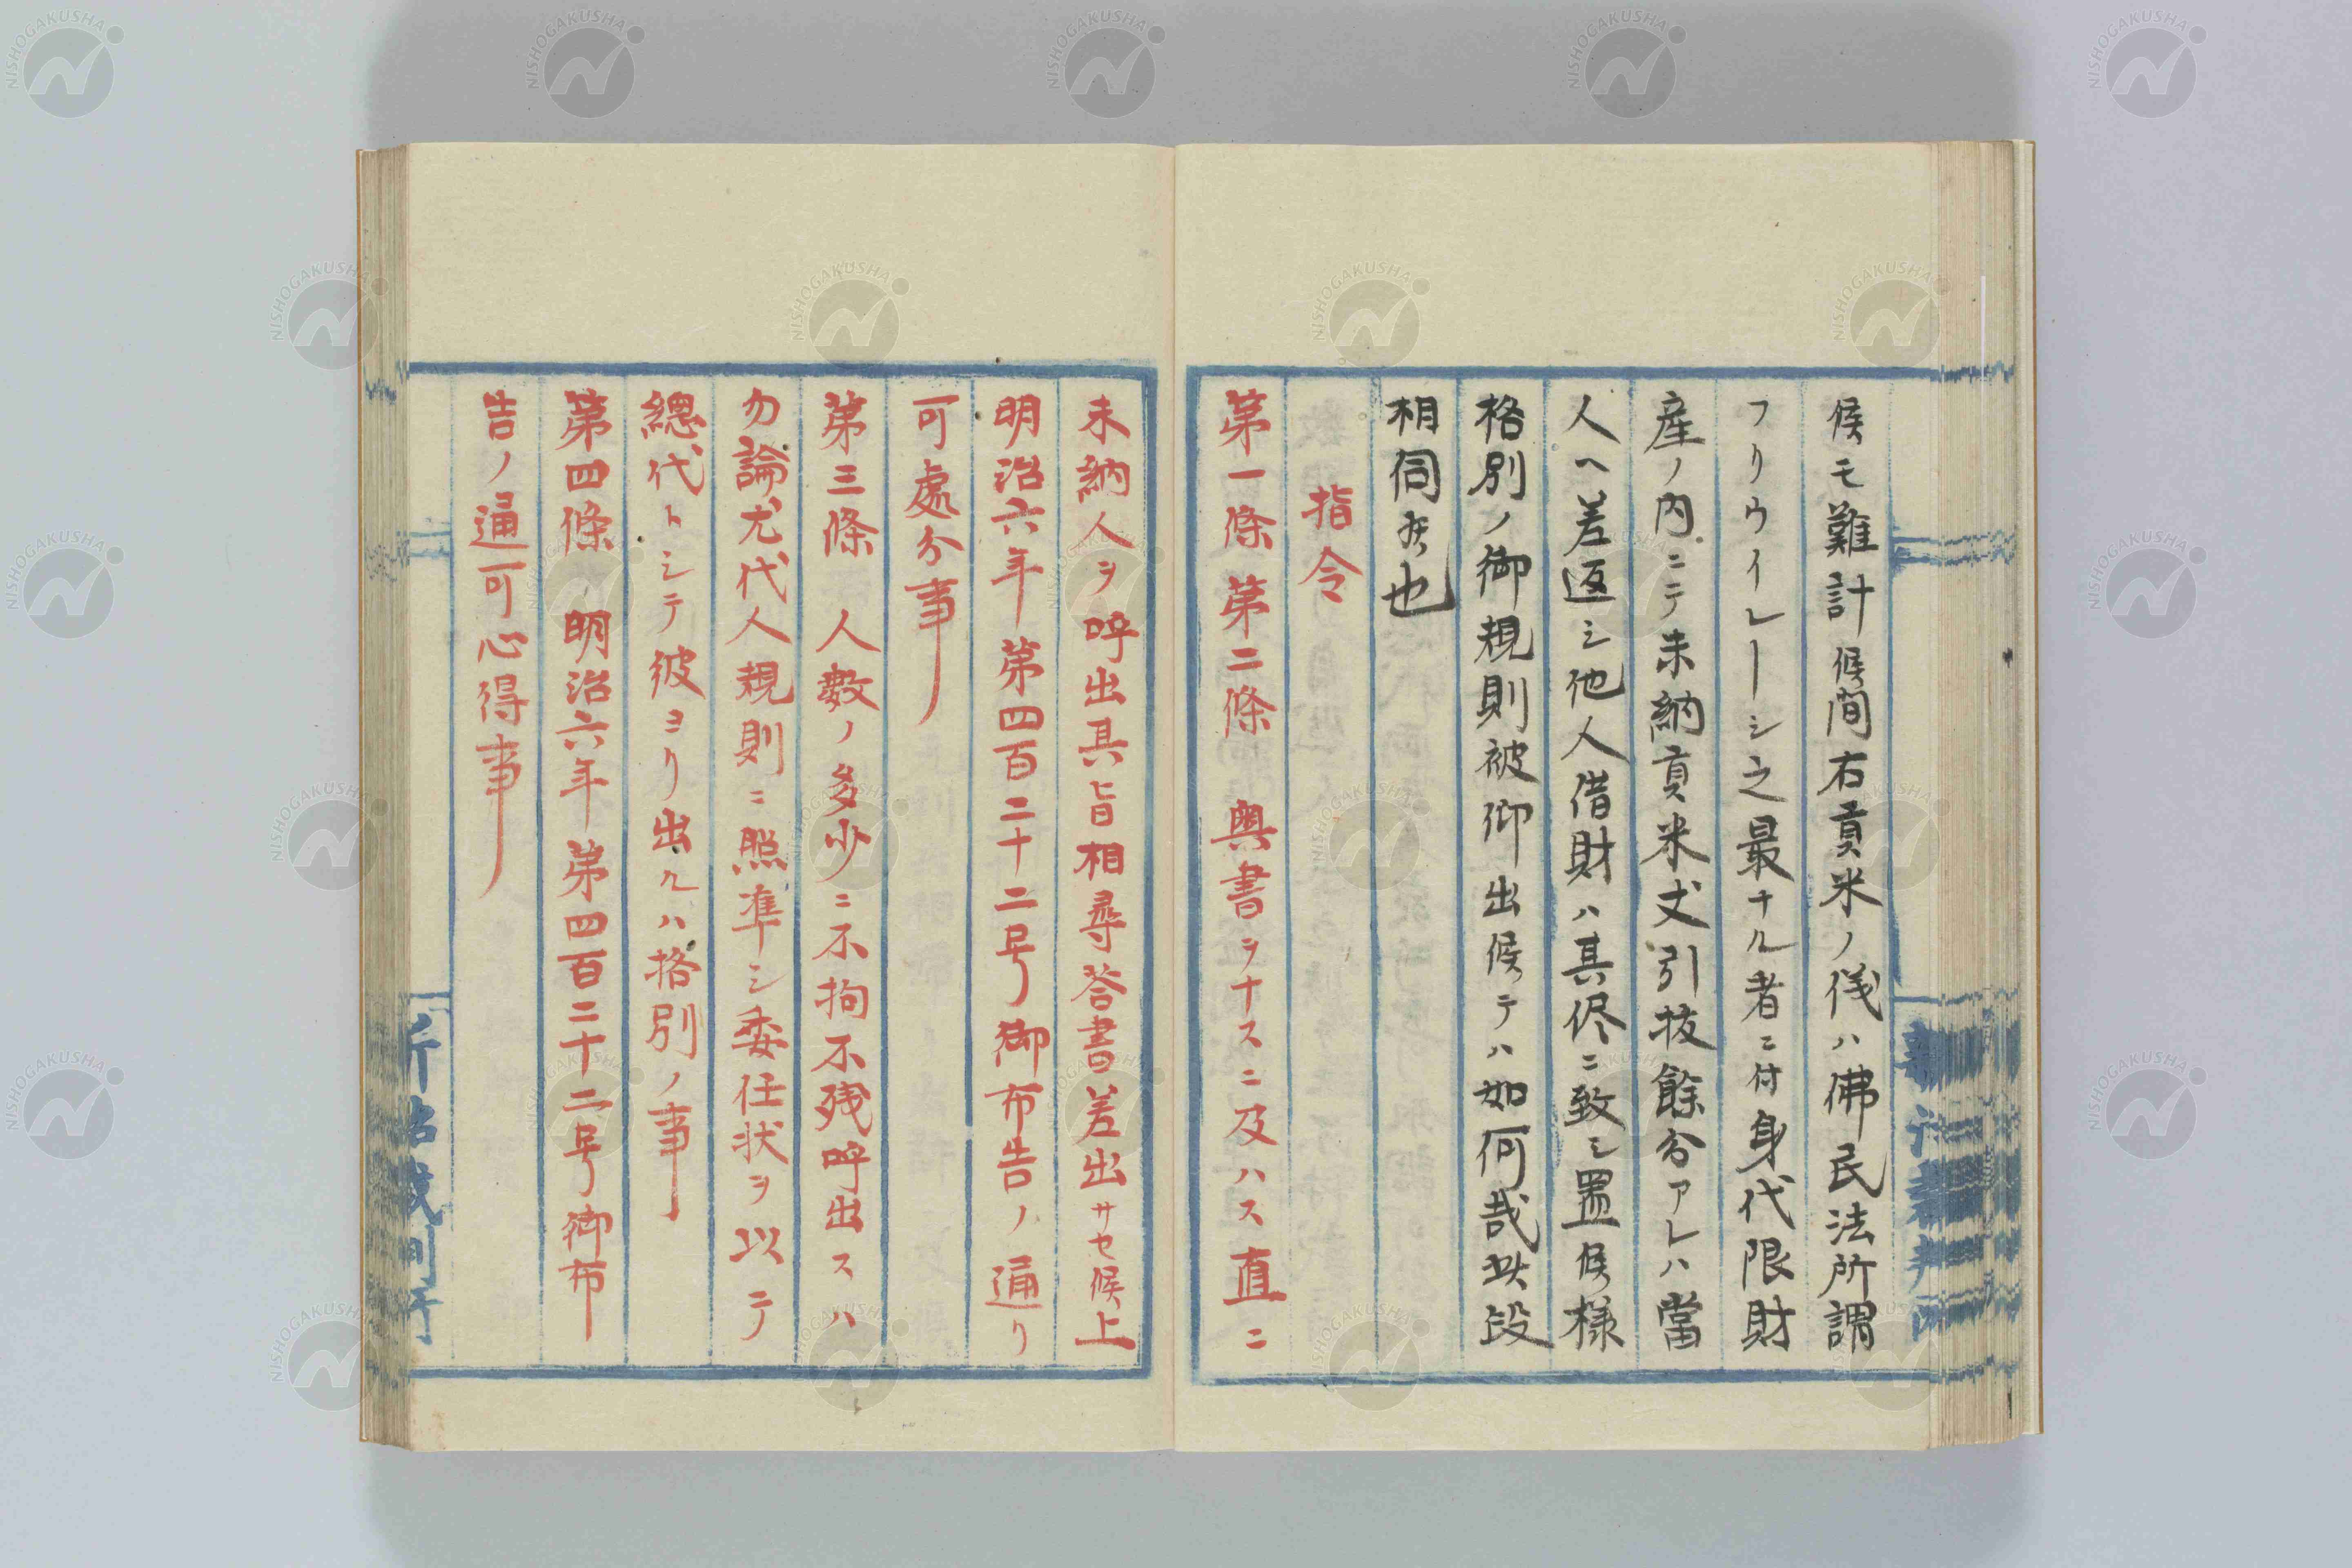 候モ難計候間右貢米ノ儀ハ佛民法所謂
フリウイレーシ之最ナル者ニ付身代限財
産ノ内ニテ未納貢米丈引抜餘分アレハ當
人ヘ差返シ他人借財ハ其侭ニ致シ置候様
格別ノ御規則被仰出候テハ如何哉此段
相伺候也
指令
第一條第二條 奥書ヲナスニ及ハス直ニ
未納人ヲ呼出其旨相尋答書差出サセ候上
明治六年第四百二十二号御布告ノ通リ
可處分事
第三條 人數ノ多少ニ不拘不残呼出スハ
勿論尤代人規則ニ照準シ委任状ヲ以テ
總代トシテ彼ヨリ出ルハ格別ノ事
第四條 明治六年第四百二十二号御布
告ノ通可心得事
NISHOGAKUSHA